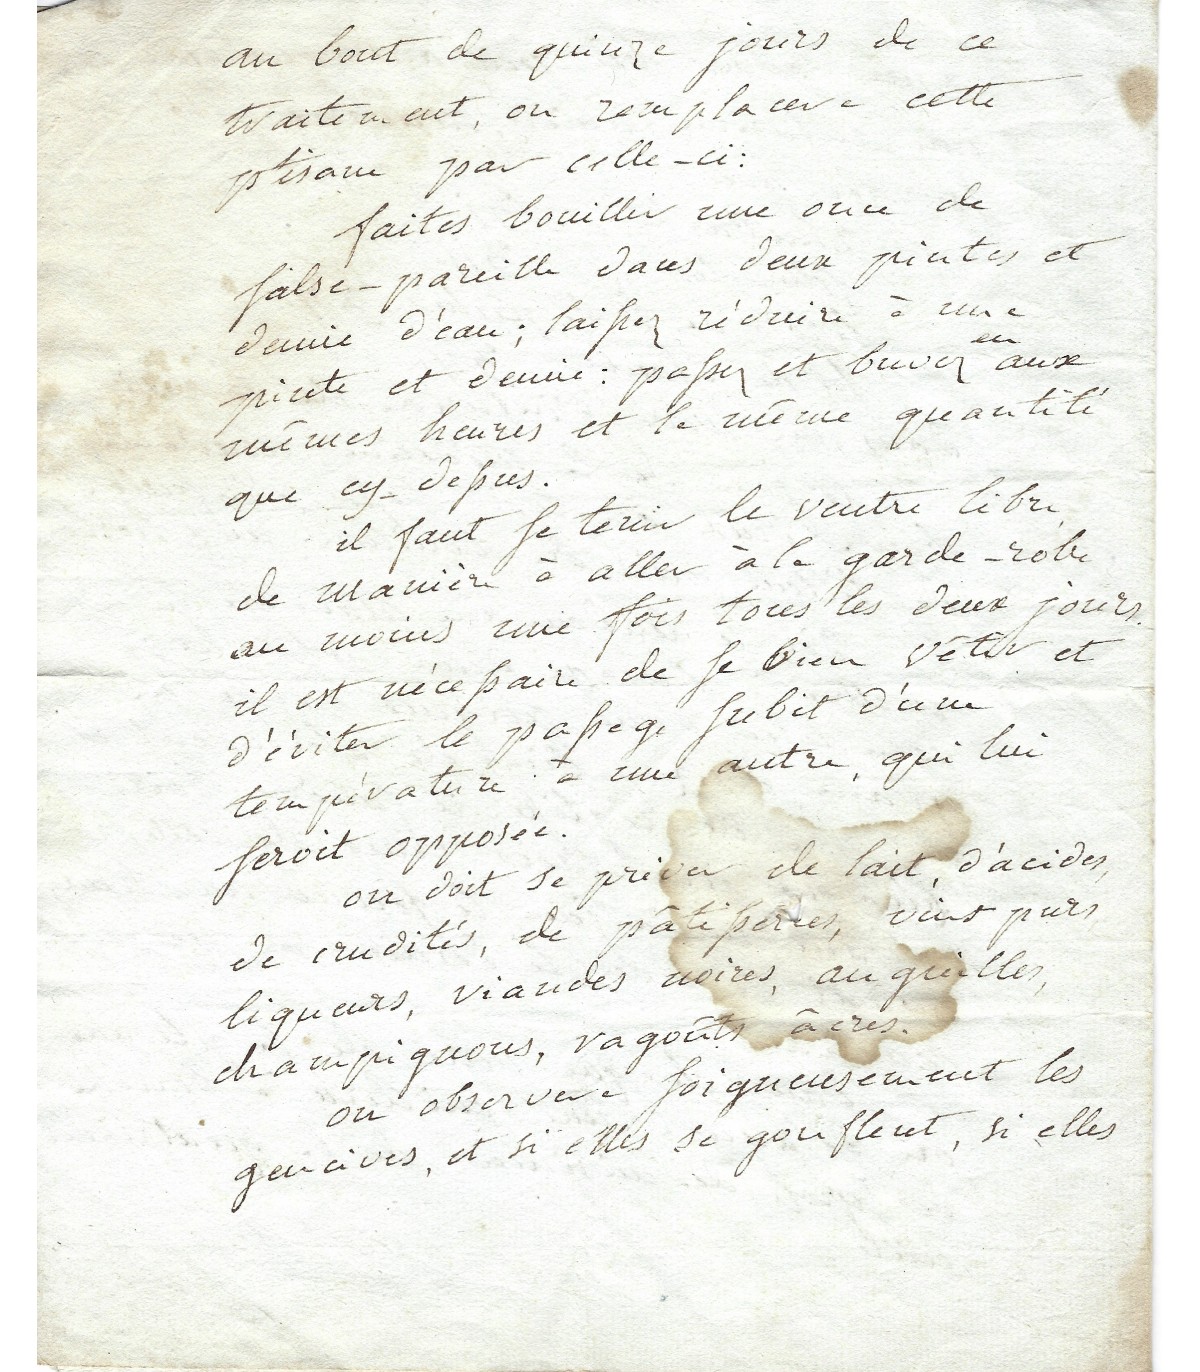 au bout de quinze jours de ce
traitement, on remplacera cette
ptisane par celle-ci:
faites bouillir une once de
salse-pareille dans deux pintes et
demie d'eau; laissez réduire à une
pinte et demie: passez et buvez en aux
mêmes heures et la même quantité
que cy-dessus.
il faut se tenir le ventre libre,
de manière à aller à la garde-robe
au moins une fois tous les deux jours.
il est nécessaire de se bien vêtir et
d'éviter le passage subit d'une
température à une autre, qui lui
seroit opposée.
on doit se priver de lait, d'acides,
de crudités, de pâtisseries, vins purs
liqueurs, viandes noires, anguilles,
champignons, ragoûts âcres.
on observera soigneusement les
gencives, et si elles se gonflent, si elles